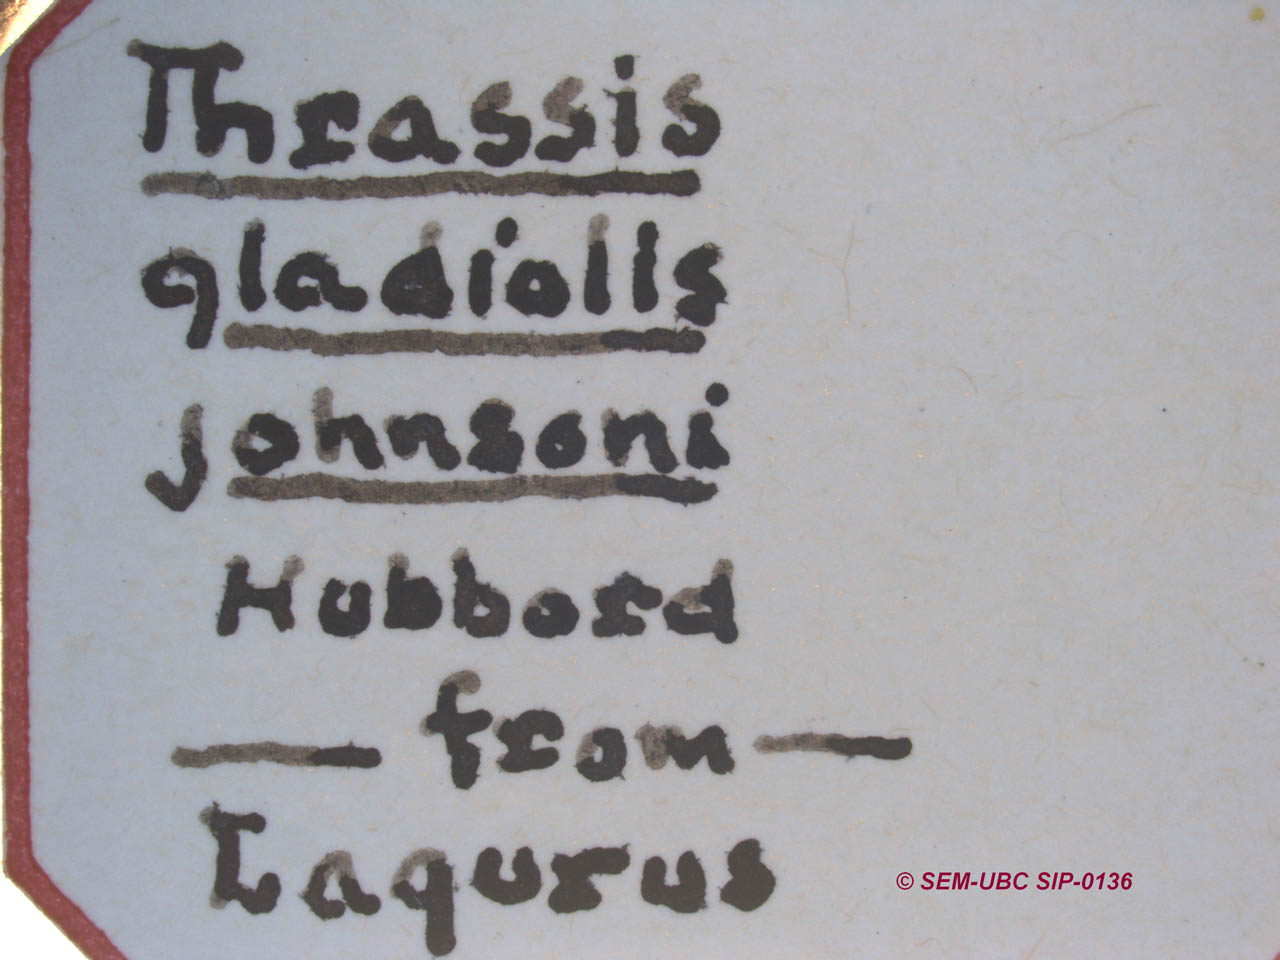 Thrassis
gladiolls
johnsoni
Hubbord
— from —
Lagurus
© SEM-UBC SIP-0136